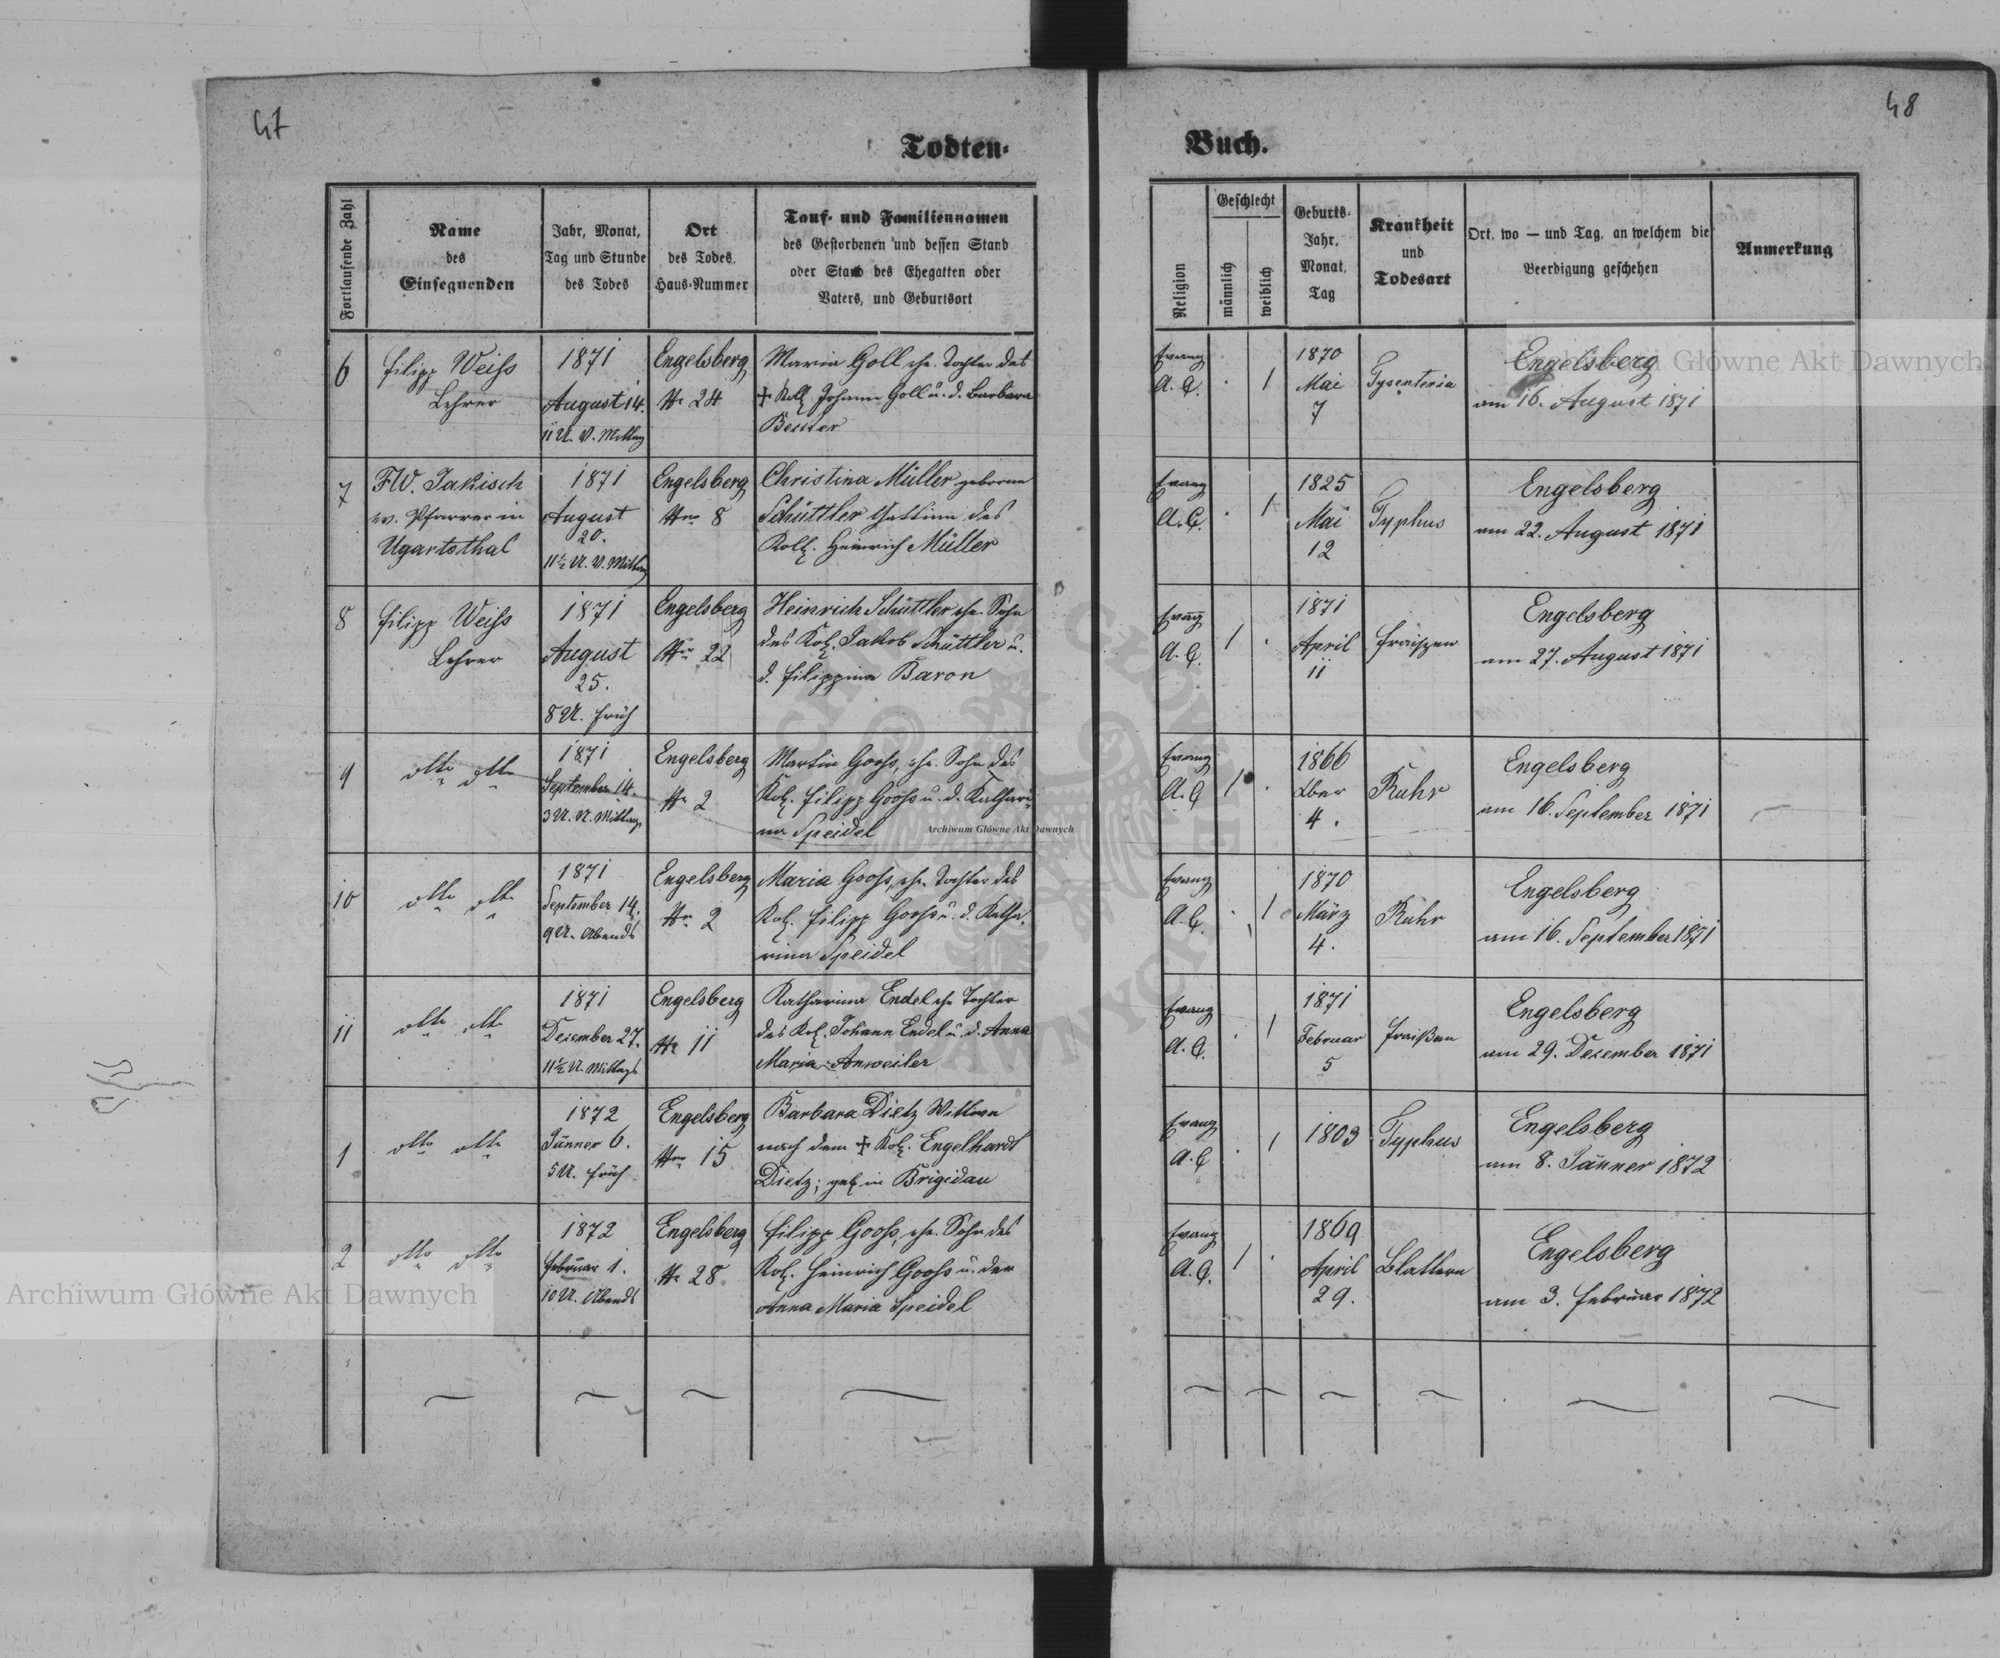 47
48
Todten-
Buch.
Fortlaufende Zahl
Name
des
Einsegnenden
Jahr, Monat,
Tag und Stunde
des Todes
Ort
des Todes,
Haus-Nummer
Tauf- und Familiennamen
des Gestorbenen und dessen Stand
oder Stand des Ehegatten oder
Vaters, und Geburtsort
Religion
Geschlecht
männlich
weiblich
Geburts-
Jahr,
Monat,
Tag
Krankheit
und
Todesart
Ort, wo — und Tag, an welchem die
Beerdigung geschehen
Anmerkung
6
Filipp Weiss
Lehrer
1871
August 14.
11 U. V. Mittag
Engelsberg
Nr 24
Maria Goll ehe. Tochter des
+ Koll Johann Goll u. d. Barbara
Beuter
Evang
A. C.
1
1870
Mai
7
Dysenteria
Engelsberg
am 16. August 1871
7
FW. Jakisch
ev. Pfarrer in
Ugartsthal
1871
August
20.
11½ U. V. Mittag
Engelsberg
Nro 8
Christina Müller geborne
Schüttler Gattinn des
Koll. Heinrich Müller
Evang
A. C.
1
1825
Mai
12
Typhus
Engelsberg
am 22. August 1871
8
Filipp Weiss
Lehrer
1871
August
25.
8 U. Früh
Engelsberg
Nro 22
Heinrich Schüttler ehe. Sohn
des Kol. Jakob Schüttler u.
d. Filippina Baron
Evang
A. C.
1
1871
April
11
Fraißen
Engelsberg
am 27. August 1871
9
dtto dtto
1871
September 14.
3 U. N. Mittag
Engelsberg
Nr 2
Martin Gooss, ehe. Sohn des
Kol. Filipp Gooss u. d. Kathari-
na Speidel
Evang
A. C.
1
1866
4.
Ruhr
Engelsberg
am 16. September 1871
10
dtto dtto
1871
September 14.
9 U. Abends
Engelsberg
Nr 2
Maria Gooss, ehe. Tochter des
Kol. Filipp Gooss u. d. Katha-
rina Speidel
Evang
A. C.
1
1870
März
4.
Ruhr
Engelsberg
am 16. September 1871
11
dtto dtto
1871
Dezember 27.
11½ U. Mittags
Engelsberg
Nr 11
Katharina Endel ehe Tochter
des Kol. Johann Endel u. d. Anna
Maria Anweiler
Evang
A. C.
1
1871
Februar
5
Fraißen
Engelsberg
am 29. Dezember 1871
1
dtto dtto
1872
Jänner 6.
5 U. Früh
Engelsberg
Nro 15
Barbara Dietz Wittwe
nach dem + Kol. Engelhardt
Dietz; geb in Brigidau
Evang
A. C.
1
1803
Typhus
Engelsberg
am 8. Jänner 1872
2
dtto dtto
1872
Februar 1.
10 U. Abends
Engelsberg
Nr 28
Filipp Gooss, ehe. Sohn des
Kol. Heinrich Gooss u. der
Anna Maria Speidel
Evang
A. C.
1
1869
April
29.
Blattern
Engelsberg
am 3. Februar 1872
Archiwum Główne Akt Dawnych
Archiwum Główne Akt Dawnych
Główne Akt Dawnych